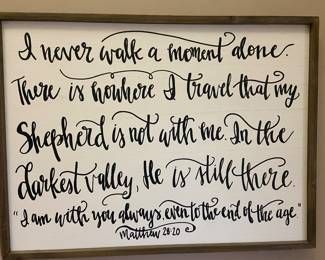 I never walk a moment alone.
There is nowhere I travel that my
Shepherd is not with me. In the
darkest valley, He is still there.
"I am with you always, even to the end of the age"
Matthew 28:20